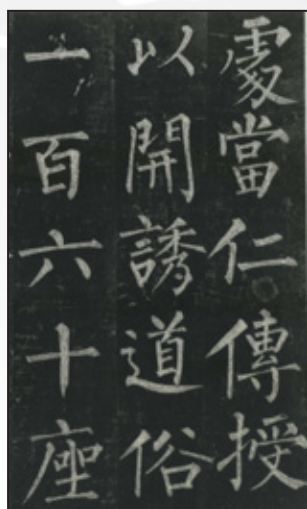 處當仁傳授
以開誘道俗
一百六十座